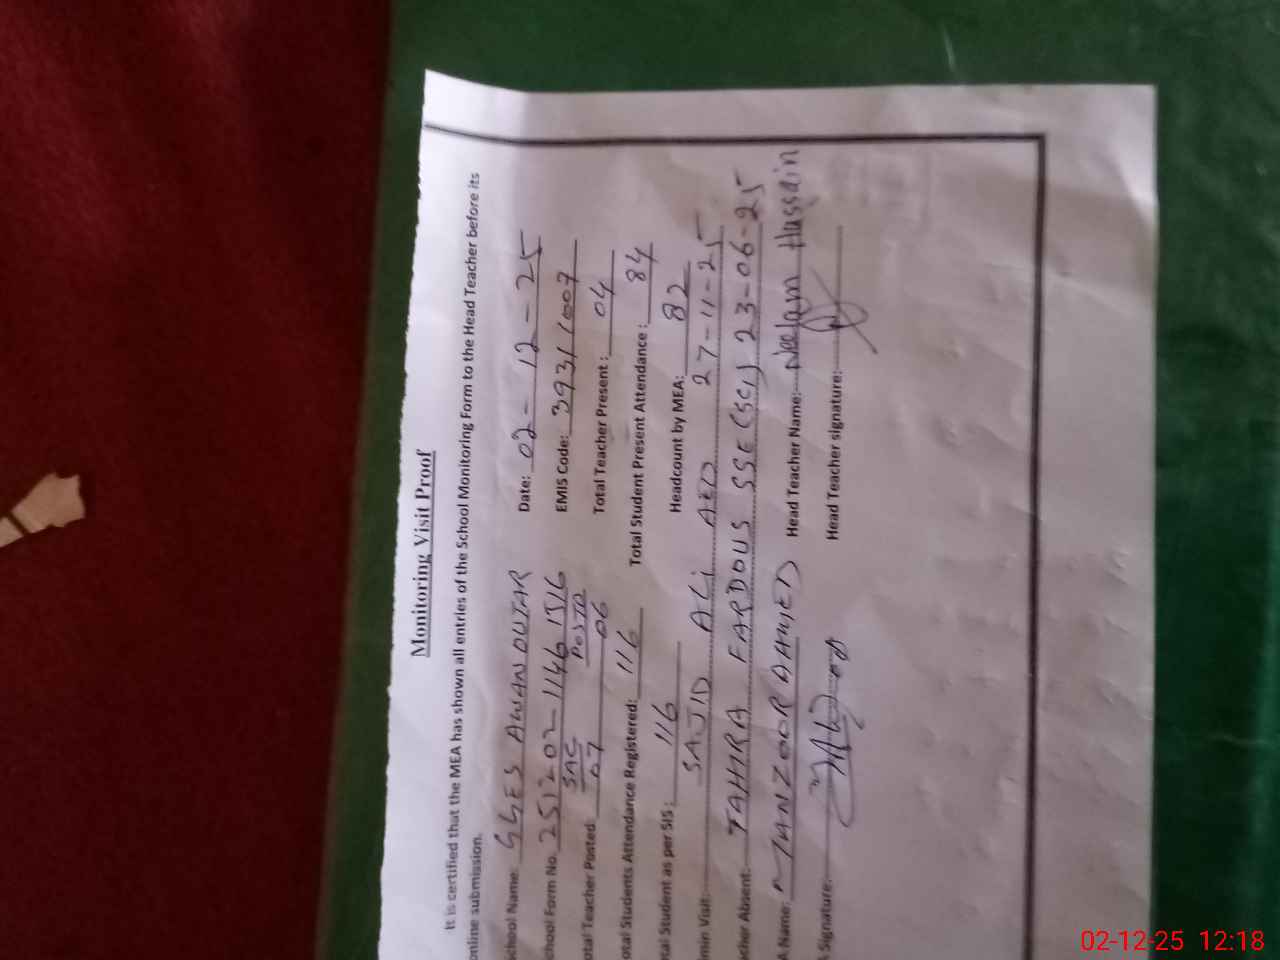 Monitoring Visit Proof
It is certified that the MEA has shown all entries of the School Monitoring Form to the Head Teacher before its
online submission.
School Name: GGES AWAN OUTAR Date: 02-12-25
School Form No. 251202-1146 1516 EMIS Code: 39311007
SAC POSTD
otal Teacher Posted 07 06 Total Teacher Present: 04
otal Students Attendance Registered: 116 Total Student Present Attendance: 84
otal Student as per SIS: 116 Headcount by MEA: 82
min Visit: SAJID ALI AEO 27-11-25
cher Absent: TAHIRA FARDOUS SSE(SCI) 23-06-25
A Name: MANZOOR AHMED Head Teacher Name: Neelam Hussain
Signature: Head Teacher signature:
02-12-25 12:18